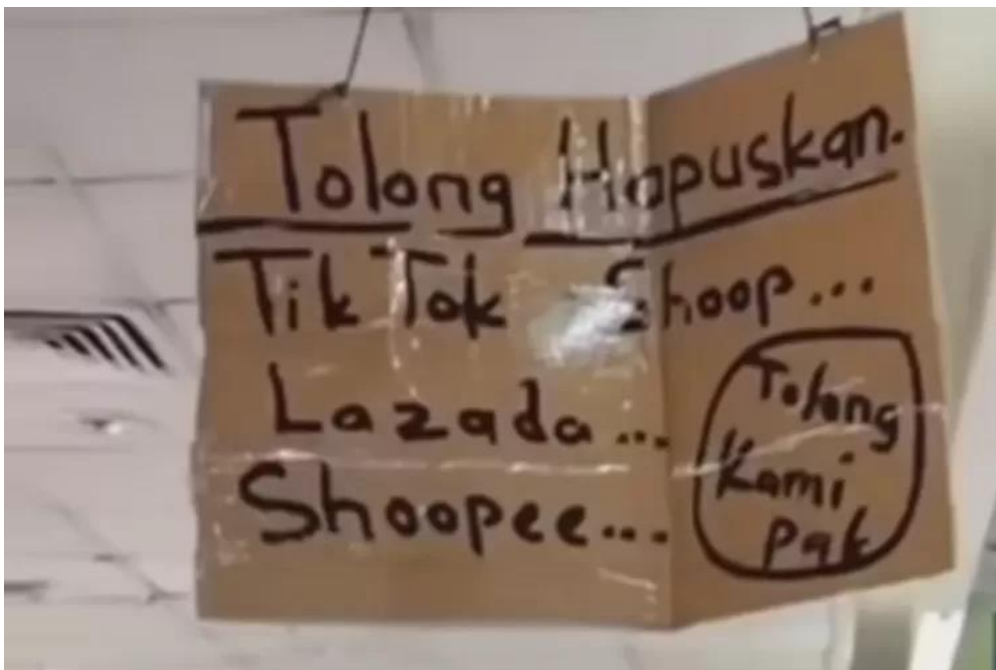 Tolong Hapuskan.
TikTok Shoop...
Lazada...
Shoopee...
Tolong
Kami
Pak